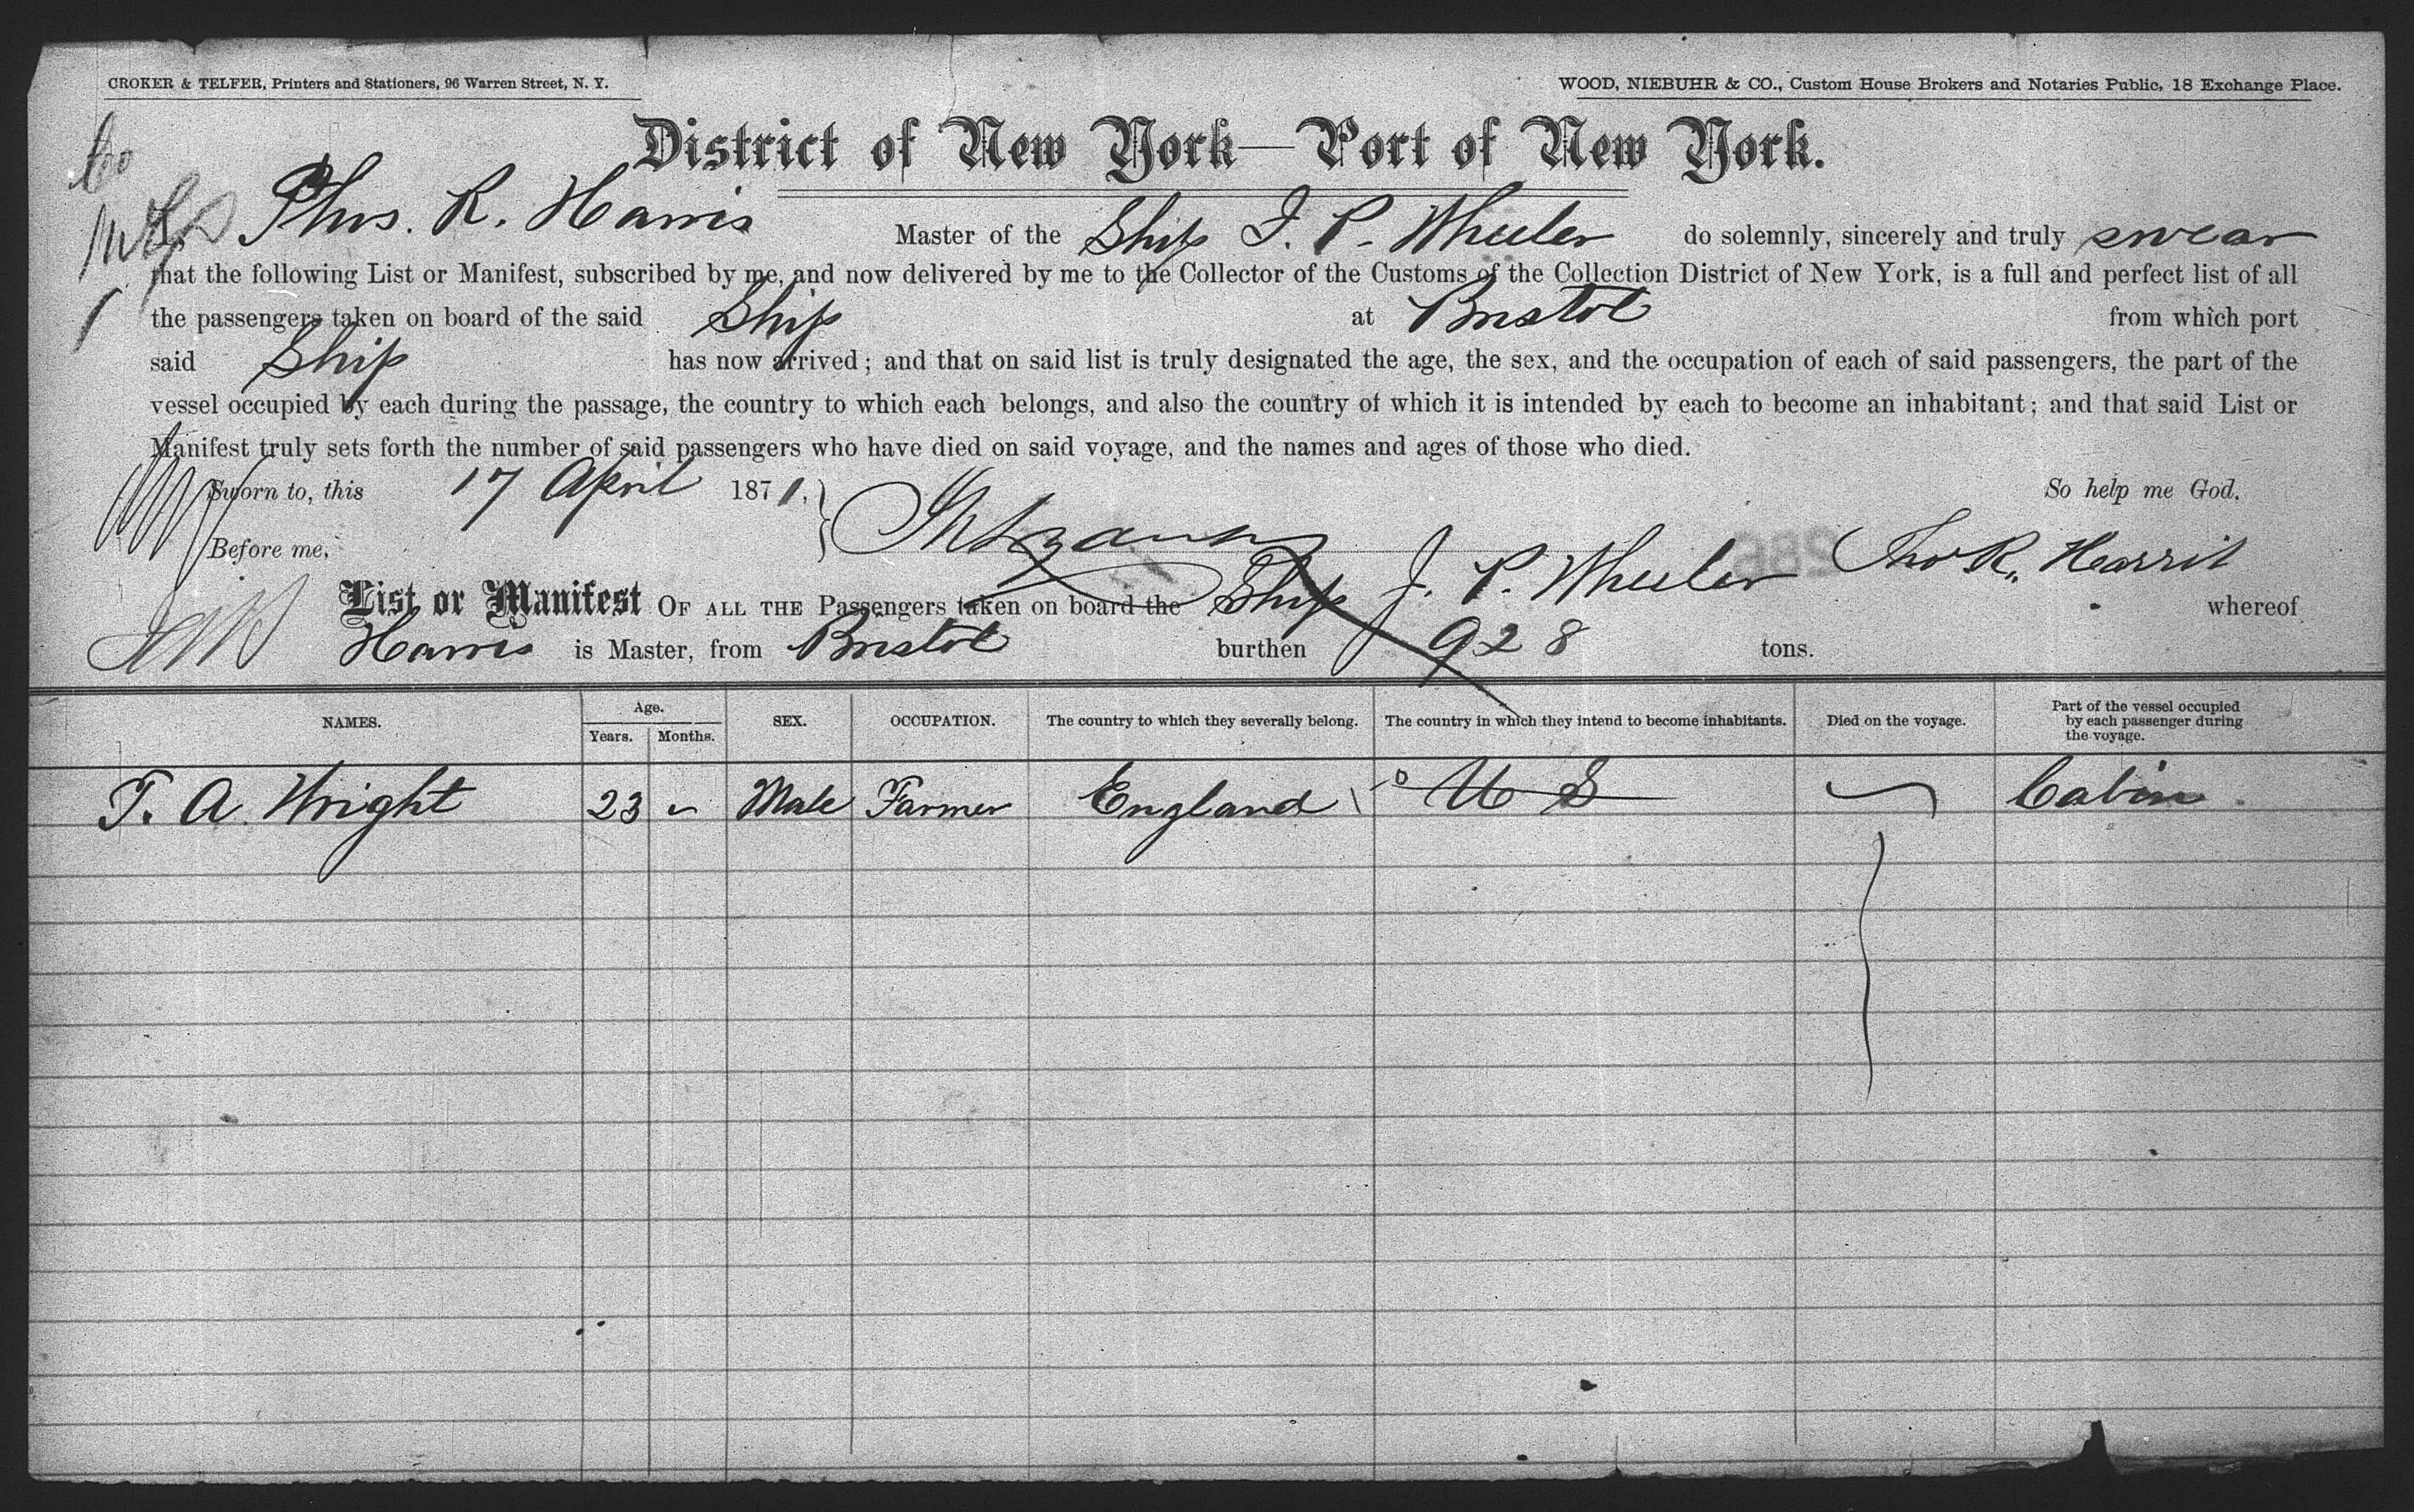 CROKER & TELFER, Printers and Stationers, 96 Warren Street, N. Y.
WOOD, NIEBUHR & CO., Custom House Brokers and Notaries Public, 18 Exchange Place.
District of New York—Port of New York.
I, Thos. R. Harris Master of the Ship J. P. Wheeler do solemnly, sincerely and truly swear
that the following List or Manifest, subscribed by me, and now delivered by me to the Collector of the Customs of the Collection District of New York, is a full and perfect list of all
the passengers taken on board of the said Ship at Bristol from which port
said Ship has now arrived; and that on said list is truly designated the age, the sex, and the occupation of each of said passengers, the part of the
vessel occupied by each during the passage, the country to which each belongs, and also the country of which it is intended by each to become an inhabitant; and that said List or
Manifest truly sets forth the number of said passengers who have died on said voyage, and the names and ages of those who died.
Sworn to, this 17 April 1871. So help me God.
Before me, Thos R. Harris
List or Manifest OF ALL THE Passengers taken on board the Ship J. P. Wheeler whereof
Harris is Master, from Bristol burthen 928 tons.
NAMES. Age. Years. Months. SEX. OCCUPATION. The country to which they severally belong. The country in which they intend to become inhabitants. Died on the voyage. Part of the vessel occupied by each passenger during the voyage.
T. A. Wright 23 Male Farmer England U S Cabin